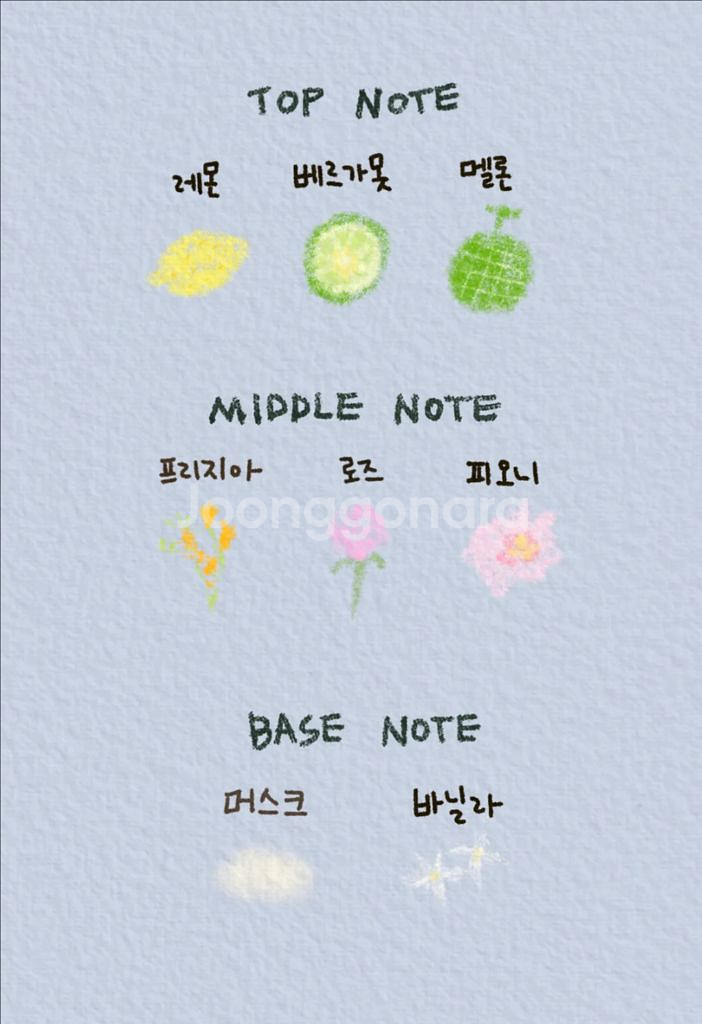 TOP NOTE
레몬 베르가못 멜론
MIDDLE NOTE
프리지아 로즈 피오니
Joonggonara
BASE NOTE
머스크 바닐라